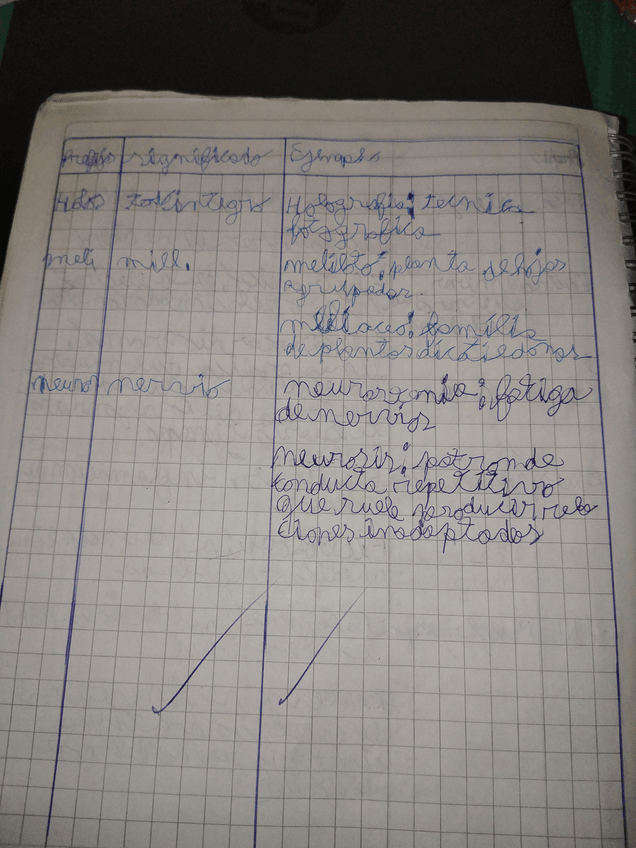 Prefijo significado Ejemplo
Holo todo integro Holografia: tecnica
fotografica
meli mill. meliloto: planta de hojas
agrupadas
meliaceo: familia
de plantas dicotiledonas
neuro nervio neurastenia: fatiga
de nervios
neurosis: patron de
conducta repetitivo
que suele producir rela
ciones inadaptadas